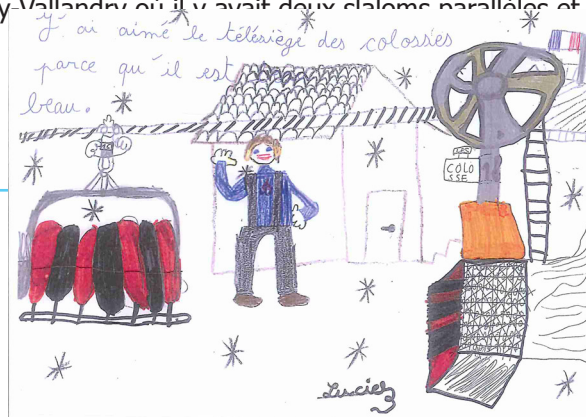 y-Vallandry où il y avait deux slaloms parallèles et
J'ai aimé le télésiège des colosses
parce qu'il est
beau.
COLO
SSE
Lucie